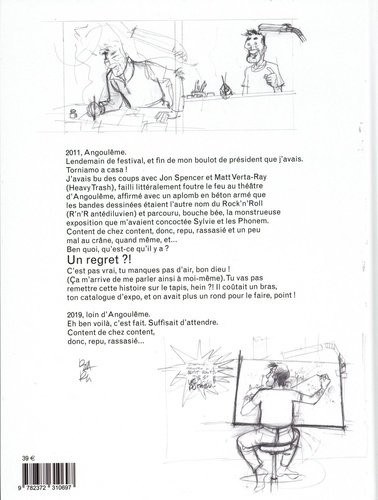 2011, Angoulême.
Lendemain de festival, et fin de mon boulot de président que j'avais.
Torniamo a casa !
J'avais bu des coups avec Jon Spencer et Matt Verta-Ray
(Heavy Trash), failli littéralement foutre le feu au théâtre
d'Angoulême, affirmé avec un aplomb en béton armé que
les bandes dessinées étaient l'autre nom du Rock'n'Roll
(R'n'R antédiluvien) et parcouru, bouche bée, la monstrueuse
exposition que m'avaient concoctée Sylvie et les Phonem.
Content de chez content, donc, repu, rassasié et un peu
mal au crâne, quand même, et...
Ben quoi, qu'est-ce qu'il y a ?
Un regret ?!
C'est pas vrai, tu manques pas d'air, bon dieu !
(Ça m'arrive de me parler ainsi à moi-même). Tu vas pas
remettre cette histoire sur le tapis, hein ?! Il coûtait un bras,
ton catalogue d'expo, et on avait plus un rond pour le faire, point !
2019, loin d'Angoulême.
Eh ben voilà, c'est fait. Suffisait d'attendre.
Content de chez content,
donc, repu, rassasié...
39 €
9 782372 310697